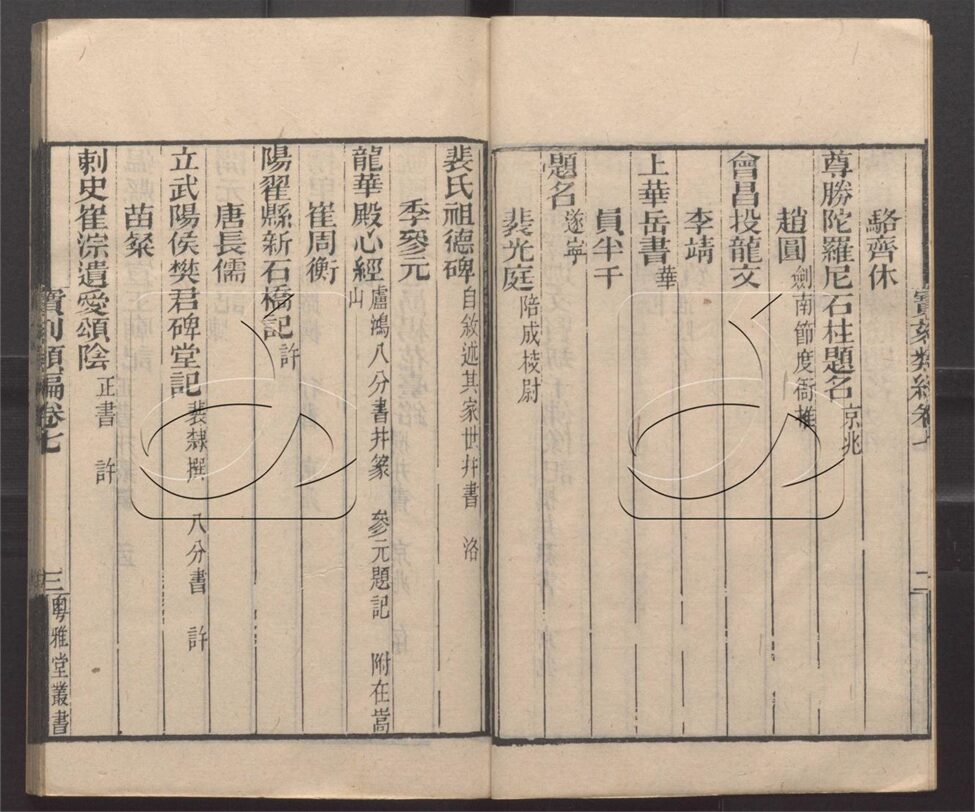 寶刻類編卷七
二
駱齊休
尊勝陀羅尼石柱題名 京兆
趙圓 劍南節度衙推
會昌投龍文
李靖
上華岳書 華
員半千
題名 遂寧
裴光庭 陪成棱尉
裴氏祖德碑 自敘述其家世幷書 洛
季參元
龍華殿心經 盧鴻八分書幷篆 參元題記 附在嵩山
崔周衡
陽翟縣新石橋記 許
唐長儒
立武陽侯樊君碑堂記 裴隸撰 八分書 許
苗粲
刺史崔淙遺愛頌陰 正書 許
寶刻類編卷七
三
粵雅堂叢書